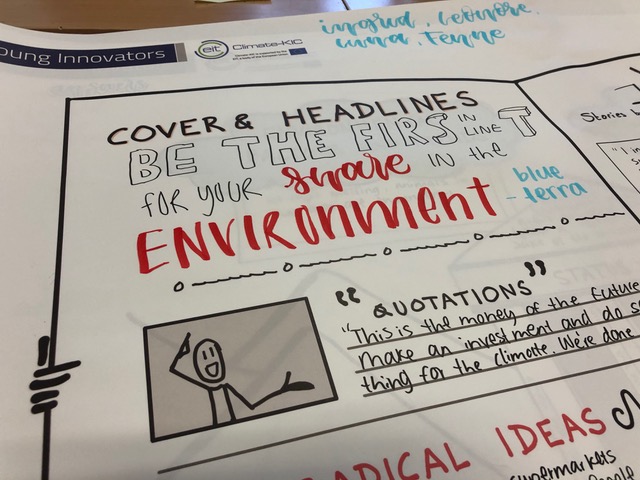 oung Innovators
eit Climate-KIC
ingrid, Leonore,
Fenne
COVER & HEADLINES
BE THE FIRST IN LINE
FOR YOUR share IN the
ENVIRONment
blue
-terra
Stories
"QUOTATIONS"
"This is the money of the future
make an investment and do so
thing for the climate. We're done
RADICAL IDEAS
supermarkets